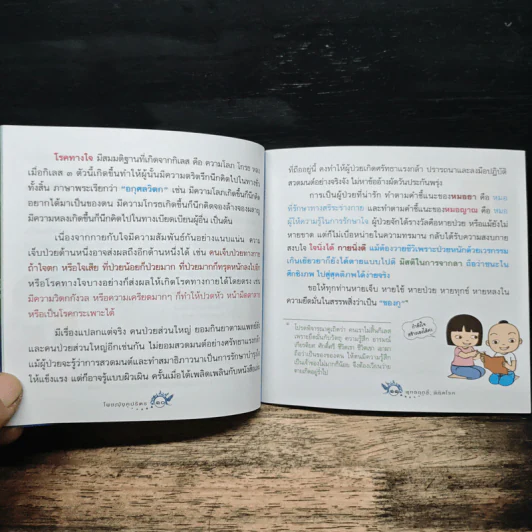 โรคทางใจ มีสมมติฐานที่เกิดจากกิเลส คือ ความโลภ โกรธ
เมื่อกิเลส ๓ ตัวนี้เกิดขึ้นทำให้ผู้นั้นมีความตริตรึกนึกคิดไปในทาง
ทั้งสิ้น ภาษาพระเรียกว่า “อกุศลวิตก” เช่น มีความโลภเกิดขึ้นก็นึกคิด
อยากได้มาเป็นของตน มีความโกรธเกิดขึ้นก็นึกคิดจองล้างจองผลาญ
มีความหลงเกิดขึ้นก็นึกคิดไปในทางเบียดเบียนผู้อื่น เป็นต้น
เนื่องจากกายกับใจมีความสัมพันธ์กันอย่างแนบแน่น ความ
เจ็บป่วยด้านหนึ่งอาจส่งผลถึงอีกด้านหนึ่งได้ เช่น คนเจ็บป่วยทางกาย
ถ้าใจตก หรือใจเสีย ที่ป่วยน้อยก็ป่วยมาก ที่ป่วยมากก็ทรุดหนักลงไปอีก
หรือโรคทางใจบางอย่างก็ส่งผลให้เกิดโรคทางกายได้โดยตรง เช่น
มีความวิตกกังวล หรือความเครียดมากๆ ก็ทำให้ปวดหัว หน้ามืดตาลาย
หรือเป็นโรคกระเพาะได้
มีเรื่องแปลกแต่จริง คนป่วยส่วนใหญ่ ยอมกินยาตามแพทย์สั่ง
และคนป่วยส่วนใหญ่อีกเช่นกัน ไม่ยอมสวดมนต์อย่างศรัทธาแรงกล้า
แม้ผู้ป่วยจะรู้ว่าการสวดมนต์และทำสมาธิภาวนาเป็นการรักษาบำรุงใจ
ให้แข็งแรง แต่ก็อาจรู้แบบผิวเผิน ครั้นเมื่อได้เพลิดเพลินกับหนังสือ
ที่ถืออยู่นี้ คงทำให้ผู้ป่วยเกิดศรัทธาแรงกล้า ปรารถนาและลงมือปฏิบัติ
สวดมนต์อย่างจริงจัง ไม่หาข้ออ้างผัดวันประกันพรุ่ง
การเป็นผู้ป่วยที่น่ารัก ทำตามคำชี้แนะของหมอยา คือ หมอ
ที่รักษาทางสรีระร่างกาย และทำตามคำชี้แนะของหมอญาณ คือ หมอ
ผู้ให้ความรู้ในการรักษาใจ ผู้ป่วยจึงได้รางวัลคือหายป่วย หรือแม้ยังไม่
หายขาด แต่ก็ไม่เบื่อหน่ายในความทรมาน กลับได้รับความสงบกาย
สงบใจ ใจนิ่งได้ กายนิ่งดี แม้ต้องวายชีวิตเพราะป่วยหนักด้วยเวรกรรม
เกินเยียวยาก็ยังได้ตายแบบไปดี มีสติในการจากลา ถือว่าชนะใน
ศึกชิงภพ ไปสู่สุคติภพได้ง่ายจริง
ขอให้ทุกท่านหายเจ็บ หายไข้ หายป่วย หายทุกข์ หายหลงใน
ความยึดมั่นในสรรพสิ่งว่าเป็น “ของกู”